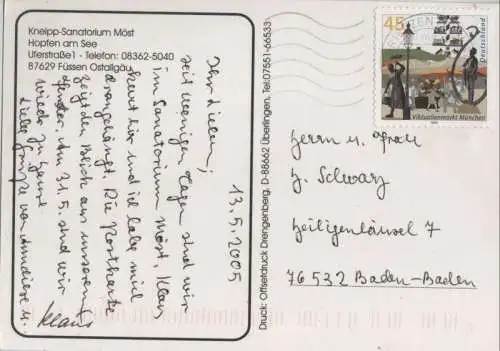 Kneipp-Sanatorium Möst
Hopfen am See
Uferstraße1 - Telefon: 08362-5040
87629 Füssen Ostallgäu
13.5.2005
Ihr Lieben,
seit wenigen Tagen sind wir
im Sanatorium Möst. Klaus
kurt hier und ich habe mich
drangehängt. Die Postkarte
zeigt den Blick aus unserem
Fenster. Am 31.5. sind wir
wieder zu Hause
Liebe Grüße von u.
Klaus
Druck: Offsetdruck Drengenberg, D-88662 Überlingen, Tel:07551-66533
45
Deutschland
Viktualienmarkt München
Herrn u. Frau
H. Schwarz
Heiligenhäusel 7
76532 Baden-Baden